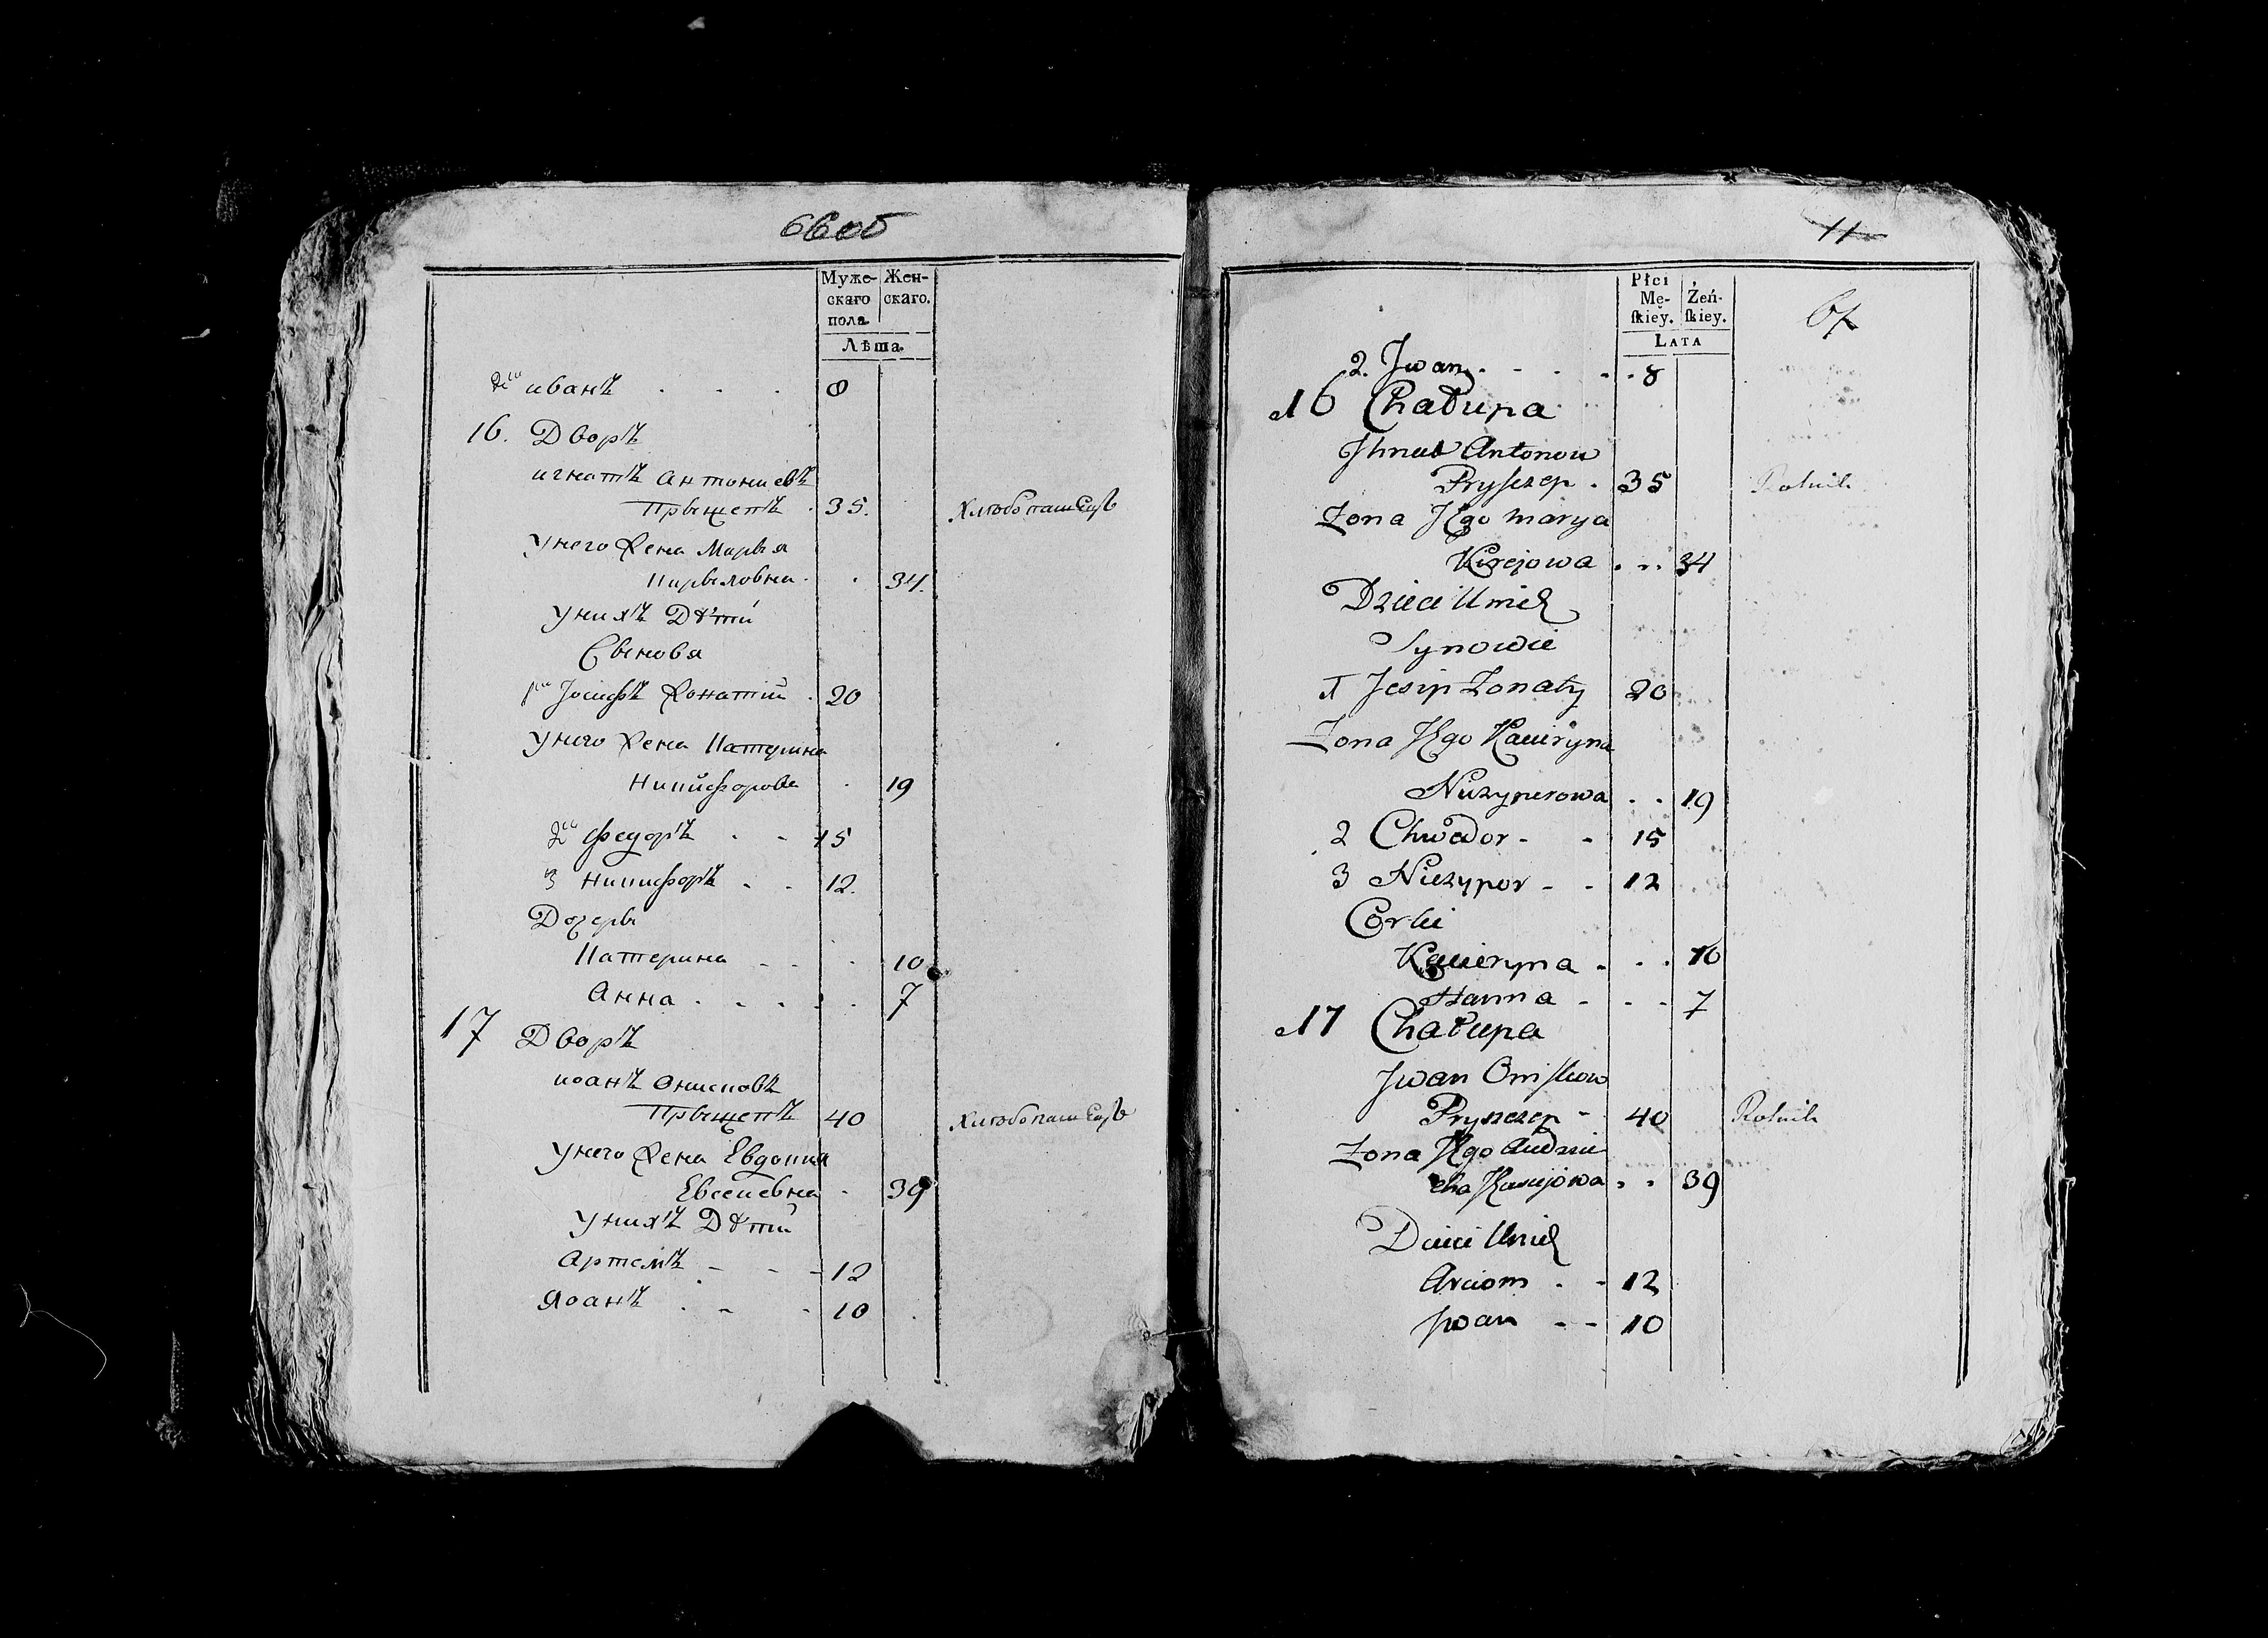 66 об
Муже-
скаго
пола
Жен-
скаго.
Лѣта.
2й иванъ 8
16. Дворъ
игнатъ антониевъ
Прыщепъ 35. Хлѣбопашецъ
У него жена Марья
Кирыловна 34.
У нихъ Дѣти
Сыновя
1й Іосифъ жонатий 20
У него жена Катерина
Никифорова 19
2й Федоръ 15
3 Никифоръ 12.
Дочери
Катерина 10
Анна 7
17 Дворъ
иоанъ Онисковъ
Прыщепъ 40 Хлѣбопашецъ
У него жена Евдокия
Евсеевна 39
У нихъ Дѣти
Артемъ 12
Иоанъ 10
11
67
Płci
Mę-
skiey.
Żeń-
skiey.
LATA
2. Jwan 8
16 Chałupa
Jhnat Antonow
Pryszczep 35 Rolnik
Zona Jego Marya
Kirejowa 34
Dzieci Unich
Synowie
1 Josip Zonaty 20
Zona Jego Kacieryna
Niczyperowa 19
2 Chwedor 15
3 Niczypor 12
Corki
Kacieryna 10
Hanna 7
17 Chałupa
Jwan Oniskow
Pryszczep 40 Rolnik
Zona Jego
39
Dzieci Unich
Arciom 12
Jwan 10